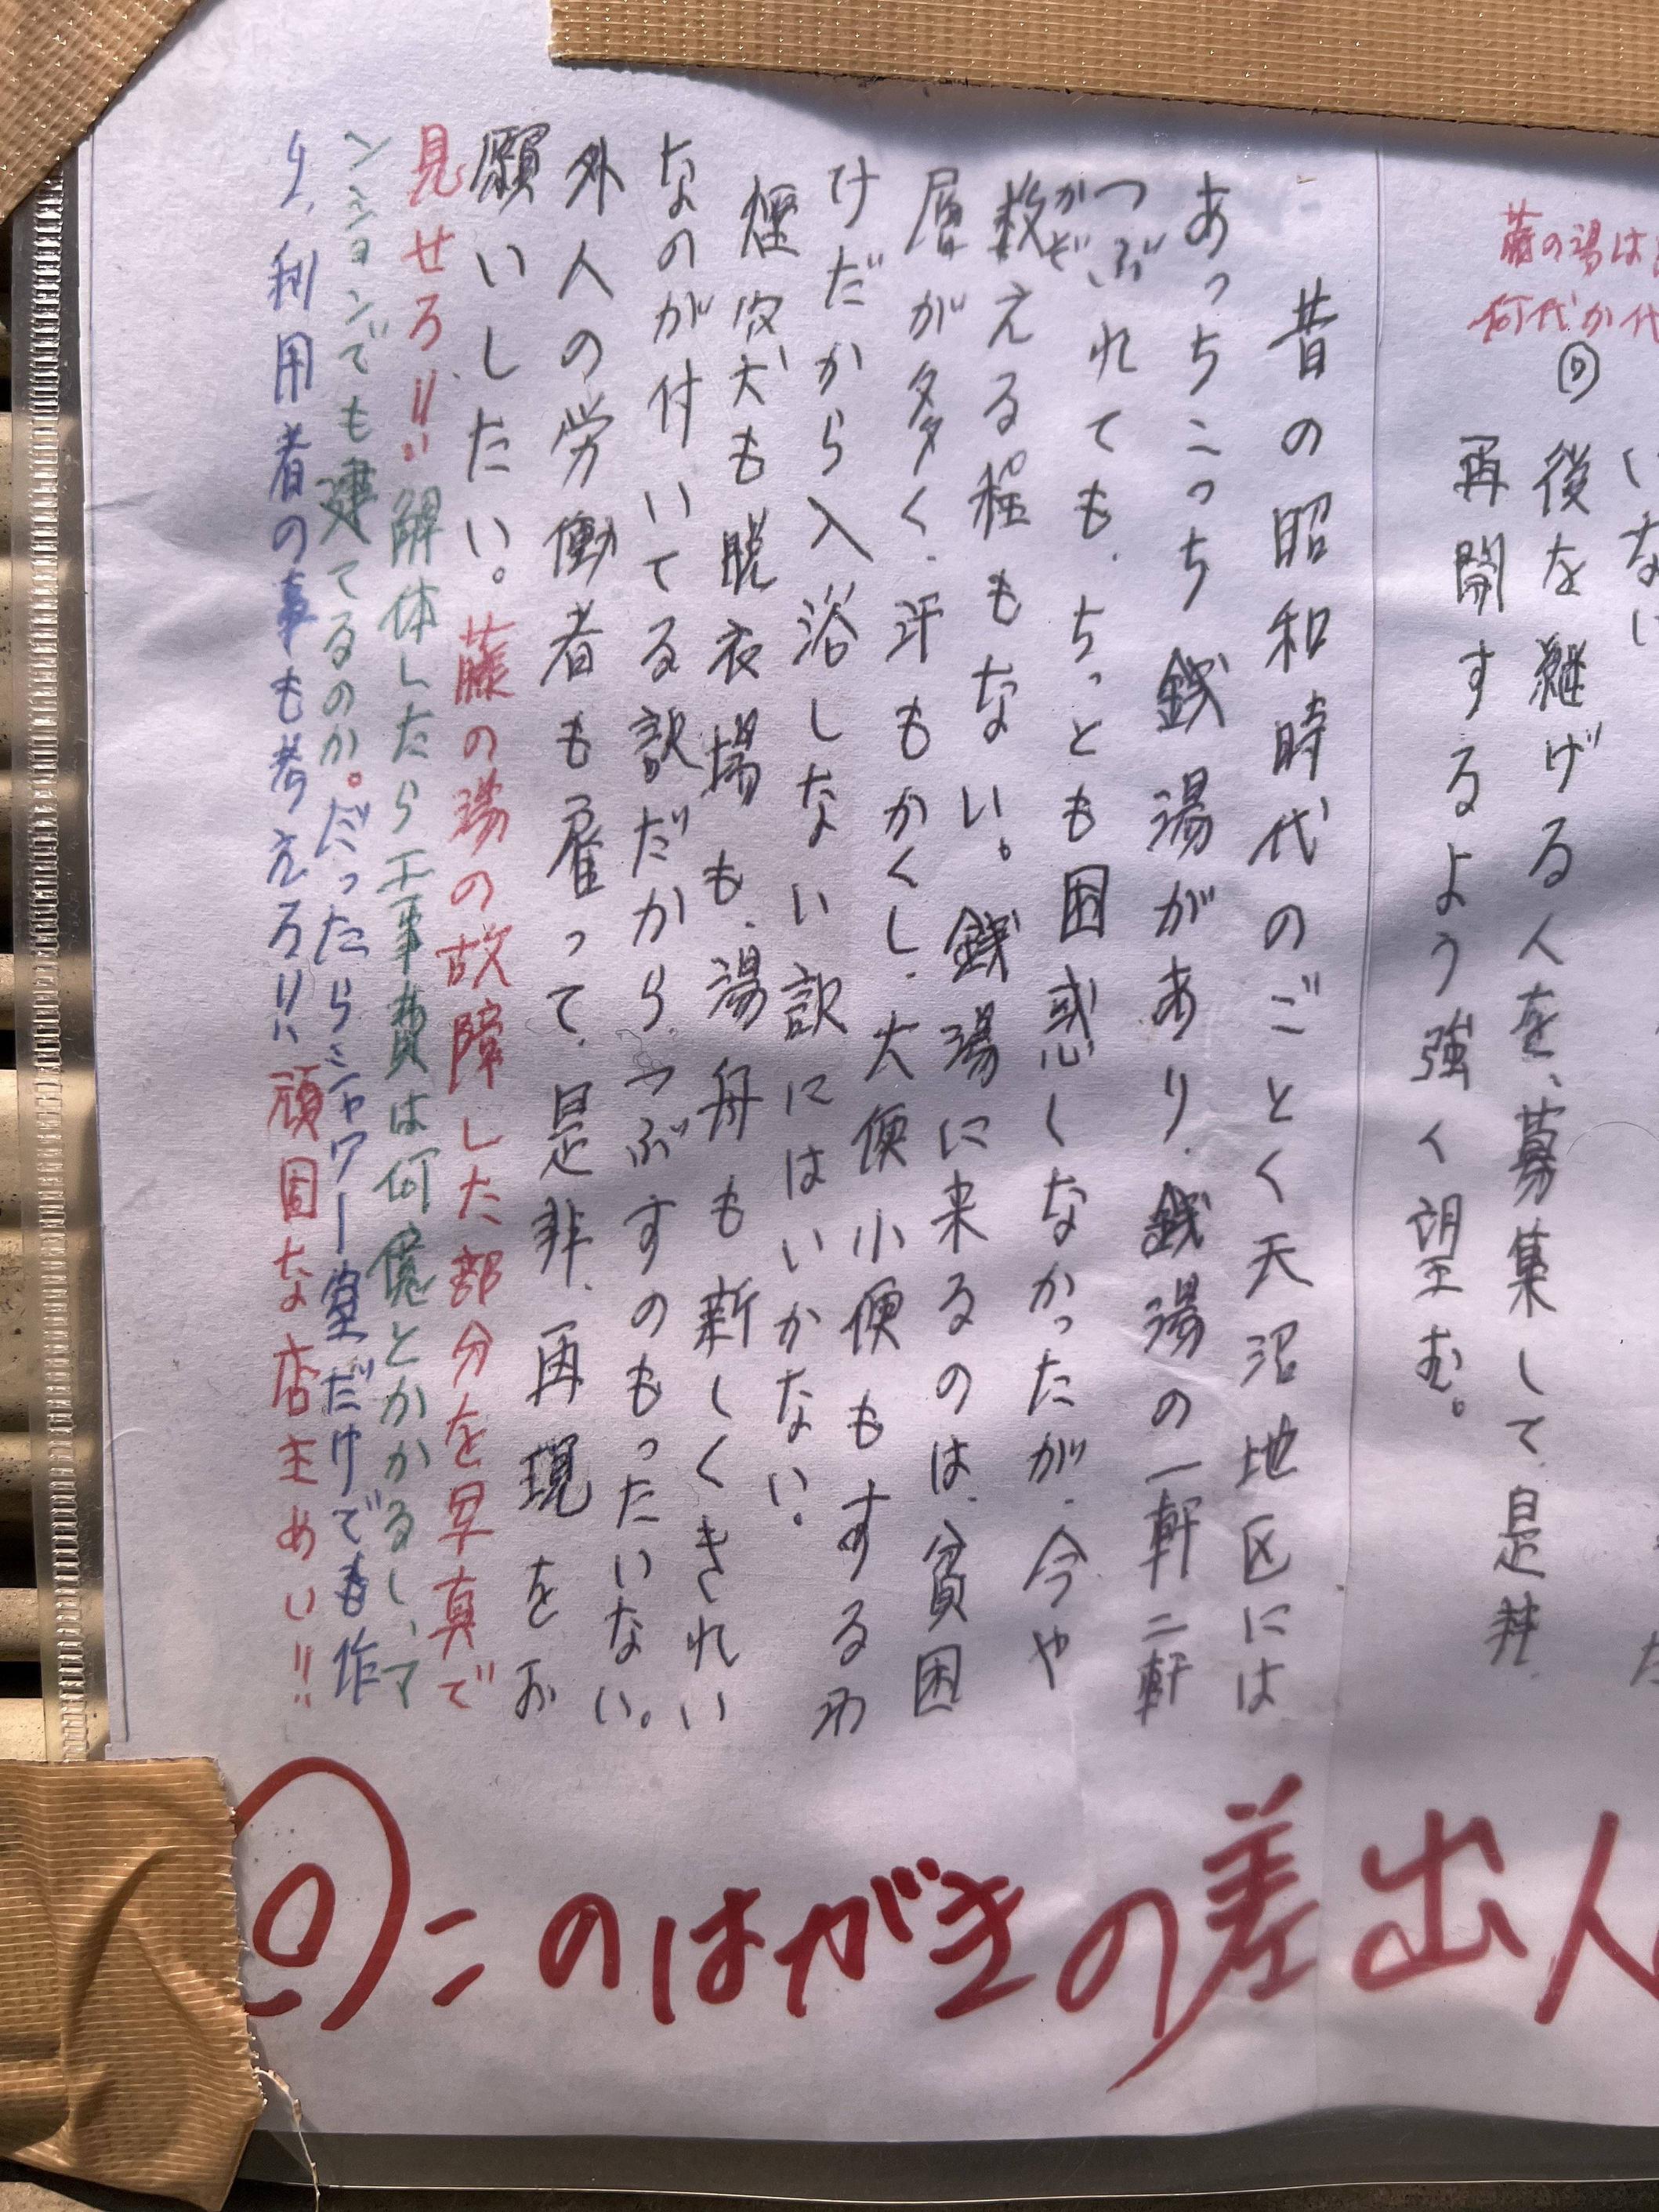 藤の湯は
何代か代
いない
② 後を継げる人を、募集して、是非、
再開するよう強く望む。
昔の昭和時代のごとく天沼地区には
あっちこっち銭湯があり、銭湯の一軒二軒
つぶれても、ちっとも困惑しなかったが、今や
数える程もない。銭湯に来るのは、貧困
かぞ
層が多く、汗もかくし、大便小便もするわ
けだから入浴しない訳にはいかない。
煙突も脱衣場も、湯舟も新しくきれい
なのが付いてる訳だから、つぶすのもったいない。
外人の労働者も雇って、是非、再現をお
願いしたい。藤の湯の故障した部分を写真で
見せろ!!解体したら工事費は何億とかかるし、マ
ンションでも建てるのか。だったらシャワー室だけでも作
り、利用者の事も考えろ!!頑固な店主めい!!
このはがきの差出人